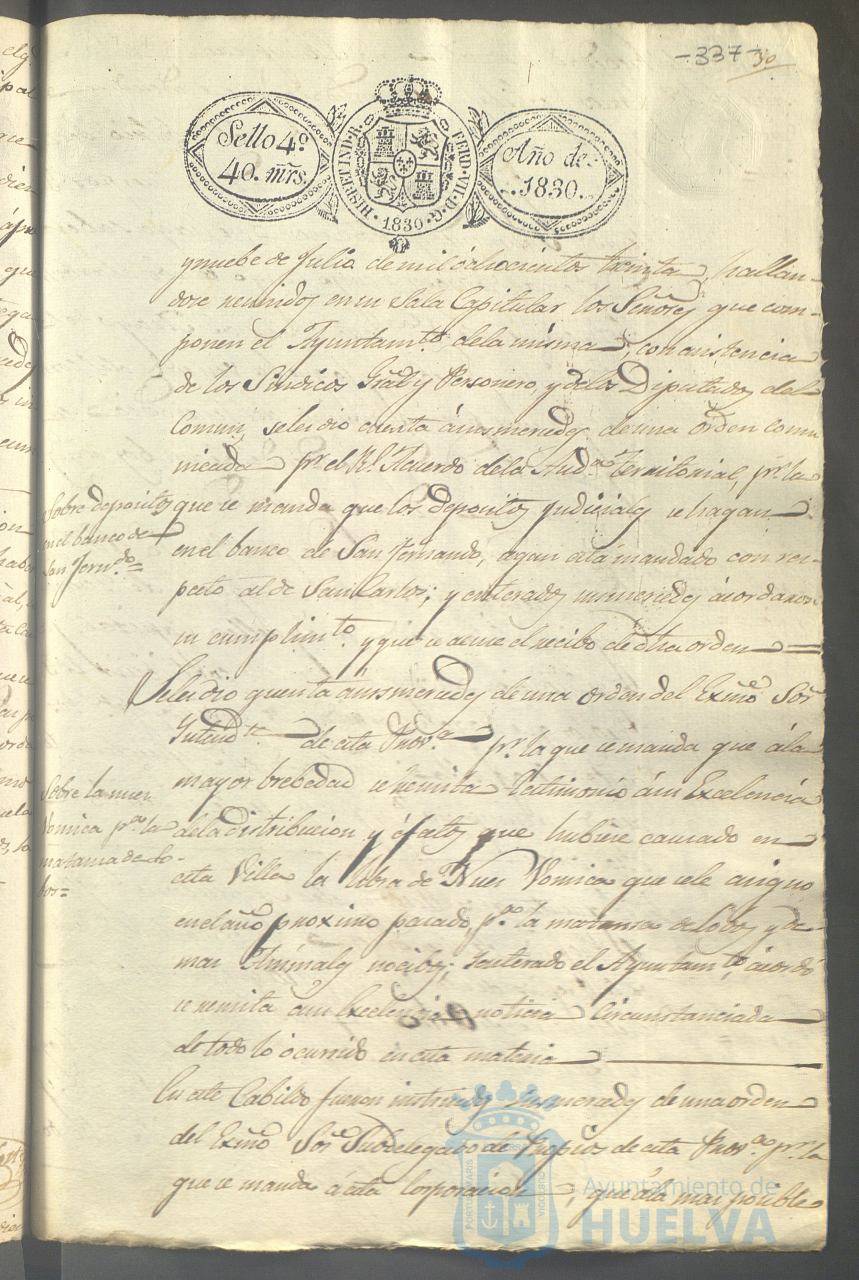 -337-
30
Sello 4º
40. mrs.
HISP. ET IND. R. FERD. VII. D. G.
1830
Año de
1830.
ynuebe de Julio de mil ochocientos treinta, hallan-
dose reunidos en su Sala Capitular los Señores que com-
ponen el Ayuntamto. dela misma, con asistencia
de los Sindicos Gral y Personero, y delos Diputados del
Comun, seles dio cuenta á sus mercedes de una orden comu
nicada pr. el Rl. Acuerdo dela Auda. territorial, pr. la
Sobre depositos
en el banco de
San Ferndo.=
que se manda que los depositos judiciales se hagan
en el banco de San Fernando, segun está mandado con res-
pecto al de San Carlos; y enterados sus mercedes acordaron
su cumplimto. y que se acuse el recibo de dha orden=
Seles dio quenta á sus mercedes de una orden del Exmo Sor
Intendte. de esta Prova. pr. la que se manda que á la
mayor brebedad se remita testimonio á su Excelencia
Sobre la nuez
Vomica pa. la
matansa de Lo-
bos=
dela distribucion y efectos que hubiese causado en
esta Villa la libra de Nuez Vomica que sele asigno
en el año proximo pasado, pa. la matansa de Lobos y de-
mas Animales nocibos; y enterado el Ayuntamto. acordó
se remita á su Excelencia noticia circunstanciada
de todo lo ocurrido en esta materia
En este Cabildo fueron instruidos sus mercedes de una orden
del Exmo Sor Subdelegado de Propios de esta Prova. pr. la
que se manda á esta Corporacion, que á la mas posible
Ayuntamiento de
HUELVA